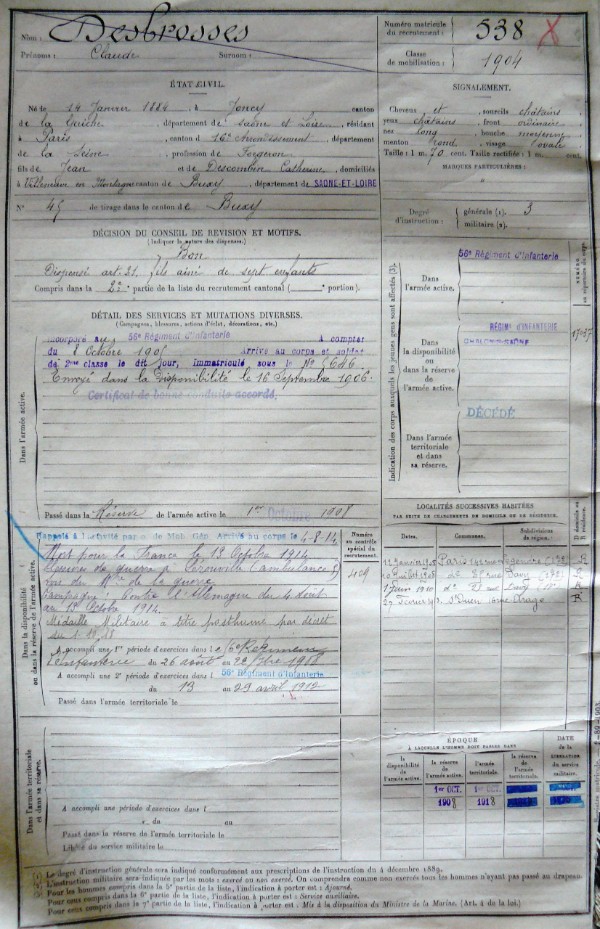 Nom : Desbrosses
Prénoms : Claude Surnom :
Numéro matricule du recrutement : 538
Classe de mobilisation : 1904
ÉTAT CIVIL.
Né le 14 Janvier 1884, à Joncy, canton
de la Guiche, département de Saône et Loire, résidant
à Paris, canton d 16e Arrondissement, département
de la Seine, profession de Forgeron
fils de Jean et de Descombin Catherine, domiciliés
à Villeneuve en Montagne canton de Buxy, département de SAONE-ET-LOIRE
N° 45 de tirage dans le canton de Buxy
SIGNALEMENT.
Cheveux et sourcils châtains
yeux châtains, front ordinaire
nez long, bouche moyenne
menton rond, visage ovale
Taille : 1 m. 70 cent. Taille rectifiée : 1 m. cent.
MARQUES PARTICULIÈRES :
Degré d'instruction : générale (1). 3
militaire (2).
DÉCISION DU CONSEIL DE REVISION ET MOTIFS.
(Indiquer la nature des dispenses.)
Bon
Dispensé art. 21, fils aîné de sept enfants
Compris dans la 2e partie de la liste du recrutement cantonal ( portion).
DÉTAIL DES SERVICES ET MUTATIONS DIVERSES.
(Campagnes, blessures, actions d'éclat, décorations, etc.)
Dans l'armée active.
Incorporé au 56e Régiment d'Infanterie à compter
du 8 Octobre 1905 Arrivé au corps et soldat
de 2me classe le dit jour, Immatriculé sous le N° 6646
Envoyé dans la Disponibilité le 16 Septembre 1906.
Certificat de bonne conduite accordé.
Passé dans la Réserve de l'armée active le 1er Octobre 1908
Indication des corps auxquels les jeunes gens sont affectés (3).
Dans l'armée active.
56e Régiment d'Infanterie
Dans la disponibilité ou dans la réserve de l'armée active.
RÉGIMt D'INFANTERIE
Dans l'armée territoriale et dans sa réserve.
DÉCÉDÉ
Dans la disponibilité ou dans la réserve de l'armée active.
Rappelé à l'activité par o de Mob. Gén. Arrivé au corps le 4-8-14
Mort pour la France le 13 Octobre 1914
blessure de guerre à Lérouville (ambulance 8)
du Mtre de la guerre
Campagne : Contre l'Allemagne du 4 Août
au 13 Octobre 1914.
Médaille Militaire à titre posthume par décret
A accompli une 1re période d'exercices dans l
d'Infanterie du 26 août au
A accompli une 2e période d'exercices dans l 56e Régiment d'Infanterie
du 13 au 29 avril 1912
Passé dans l'armée territoriale le
Numéro au contrôle spécial du recrutement.
LOCALITÉS SUCCESSIVES HABITÉES
PAR SUITE DE CHANGEMENTS DE DOMICILE OU DE RÉSIDENCE.
Dates. Communes. Subdivisions de région. D domicile ou R résidence.
Paris
Dans l'armée territoriale et dans sa réserve.
A accompli une période d'exercices dans l
du au
Passé dans la réserve de l'armée territoriale le
Libéré du service militaire le
ÉPOQUE
À LAQUELLE L'HOMME DOIT PASSER DANS
la disponibilité de l'armée active. la réserve de l'armée active. l'armée territoriale. la réserve de l'armée territoriale.
DATE de la LIBÉRATION du service militaire.
1er OCT. 1er OCT.
1908 1918
Le degré d'instruction générale sera indiqué conformément aux prescriptions de l'instruction du 4 décembre 1889.
L'instruction militaire sera indiquée par les mots : exercé ou non exercé. On comprendra comme non exercés tous les hommes n'ayant pas passé au drapeau.
Pour les hommes compris dans la 5e partie de la liste, l'indication à porter est : Ajourné.
Pour ceux compris dans la 6e partie de la liste, l'indication à porter est : Service auxiliaire.
Pour ceux compris dans la 7e partie de la liste, l'indication à porter est : Mis à la disposition du Ministre de la Marine. (Art. 4 de la loi.)